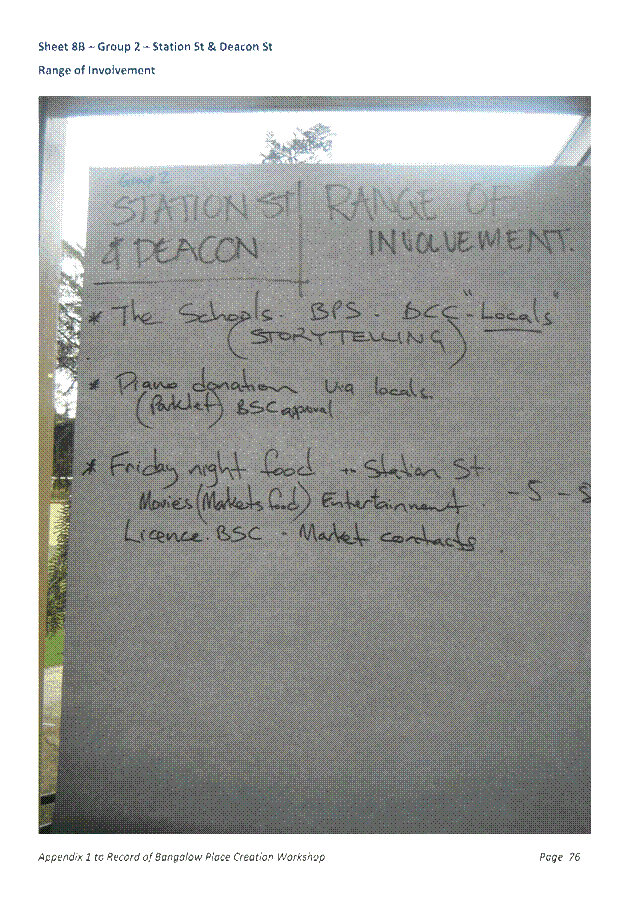 Sheet 8B – Group 2 – Station St & Deacon St
Range of Involvement
Group 2
STATION ST RANGE OF
& DEACON INVOLVEMENT.
* The Schools. BPS. BCC - "Locals"
(STORYTELLING)
* Piano donation via locals.
(Parklet) BSC approval
* Friday night food in Station St.
Movies (Markets food) Entertainment - 5 - 8
Licence. BSC - Market contacts
Appendix 1 to Record of Bangalow Place Creation Workshop Page 76